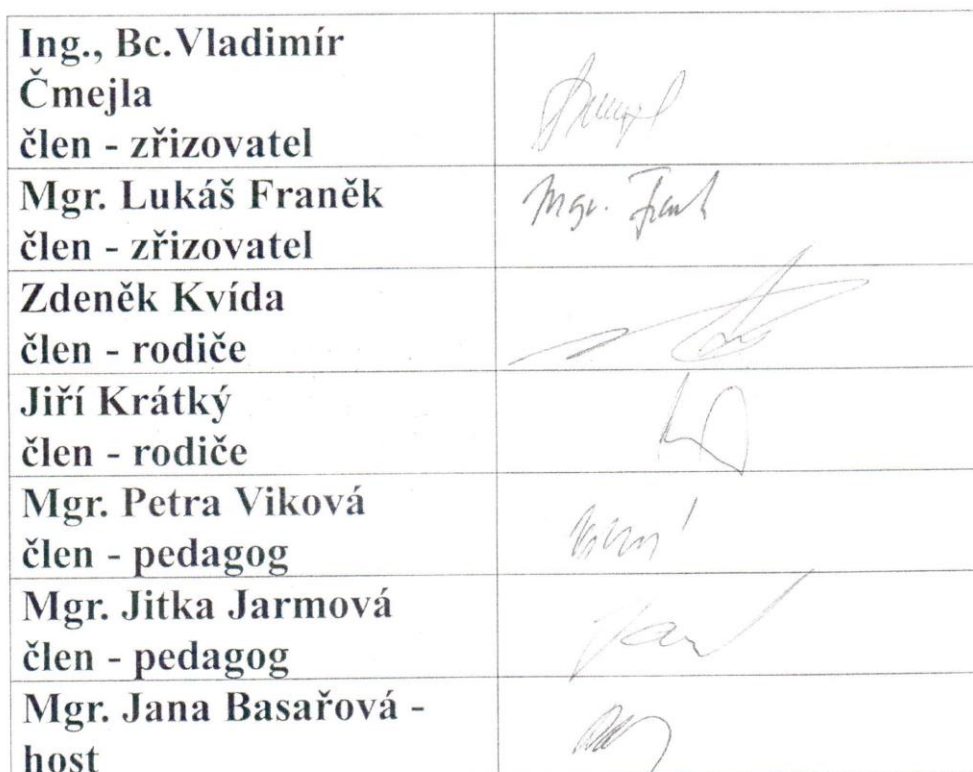 Ing., Bc.Vladimír
Čmejla
člen - zřizovatel
Mgr. Lukáš Franěk
Mgr.
člen - zřizovatel
Zdeněk Kvída
člen - rodiče
Jiří Krátký
člen - rodiče
Mgr. Petra Viková
člen - pedagog
Mgr. Jitka Jarmová
člen - pedagog
Mgr. Jana Basařová -
host